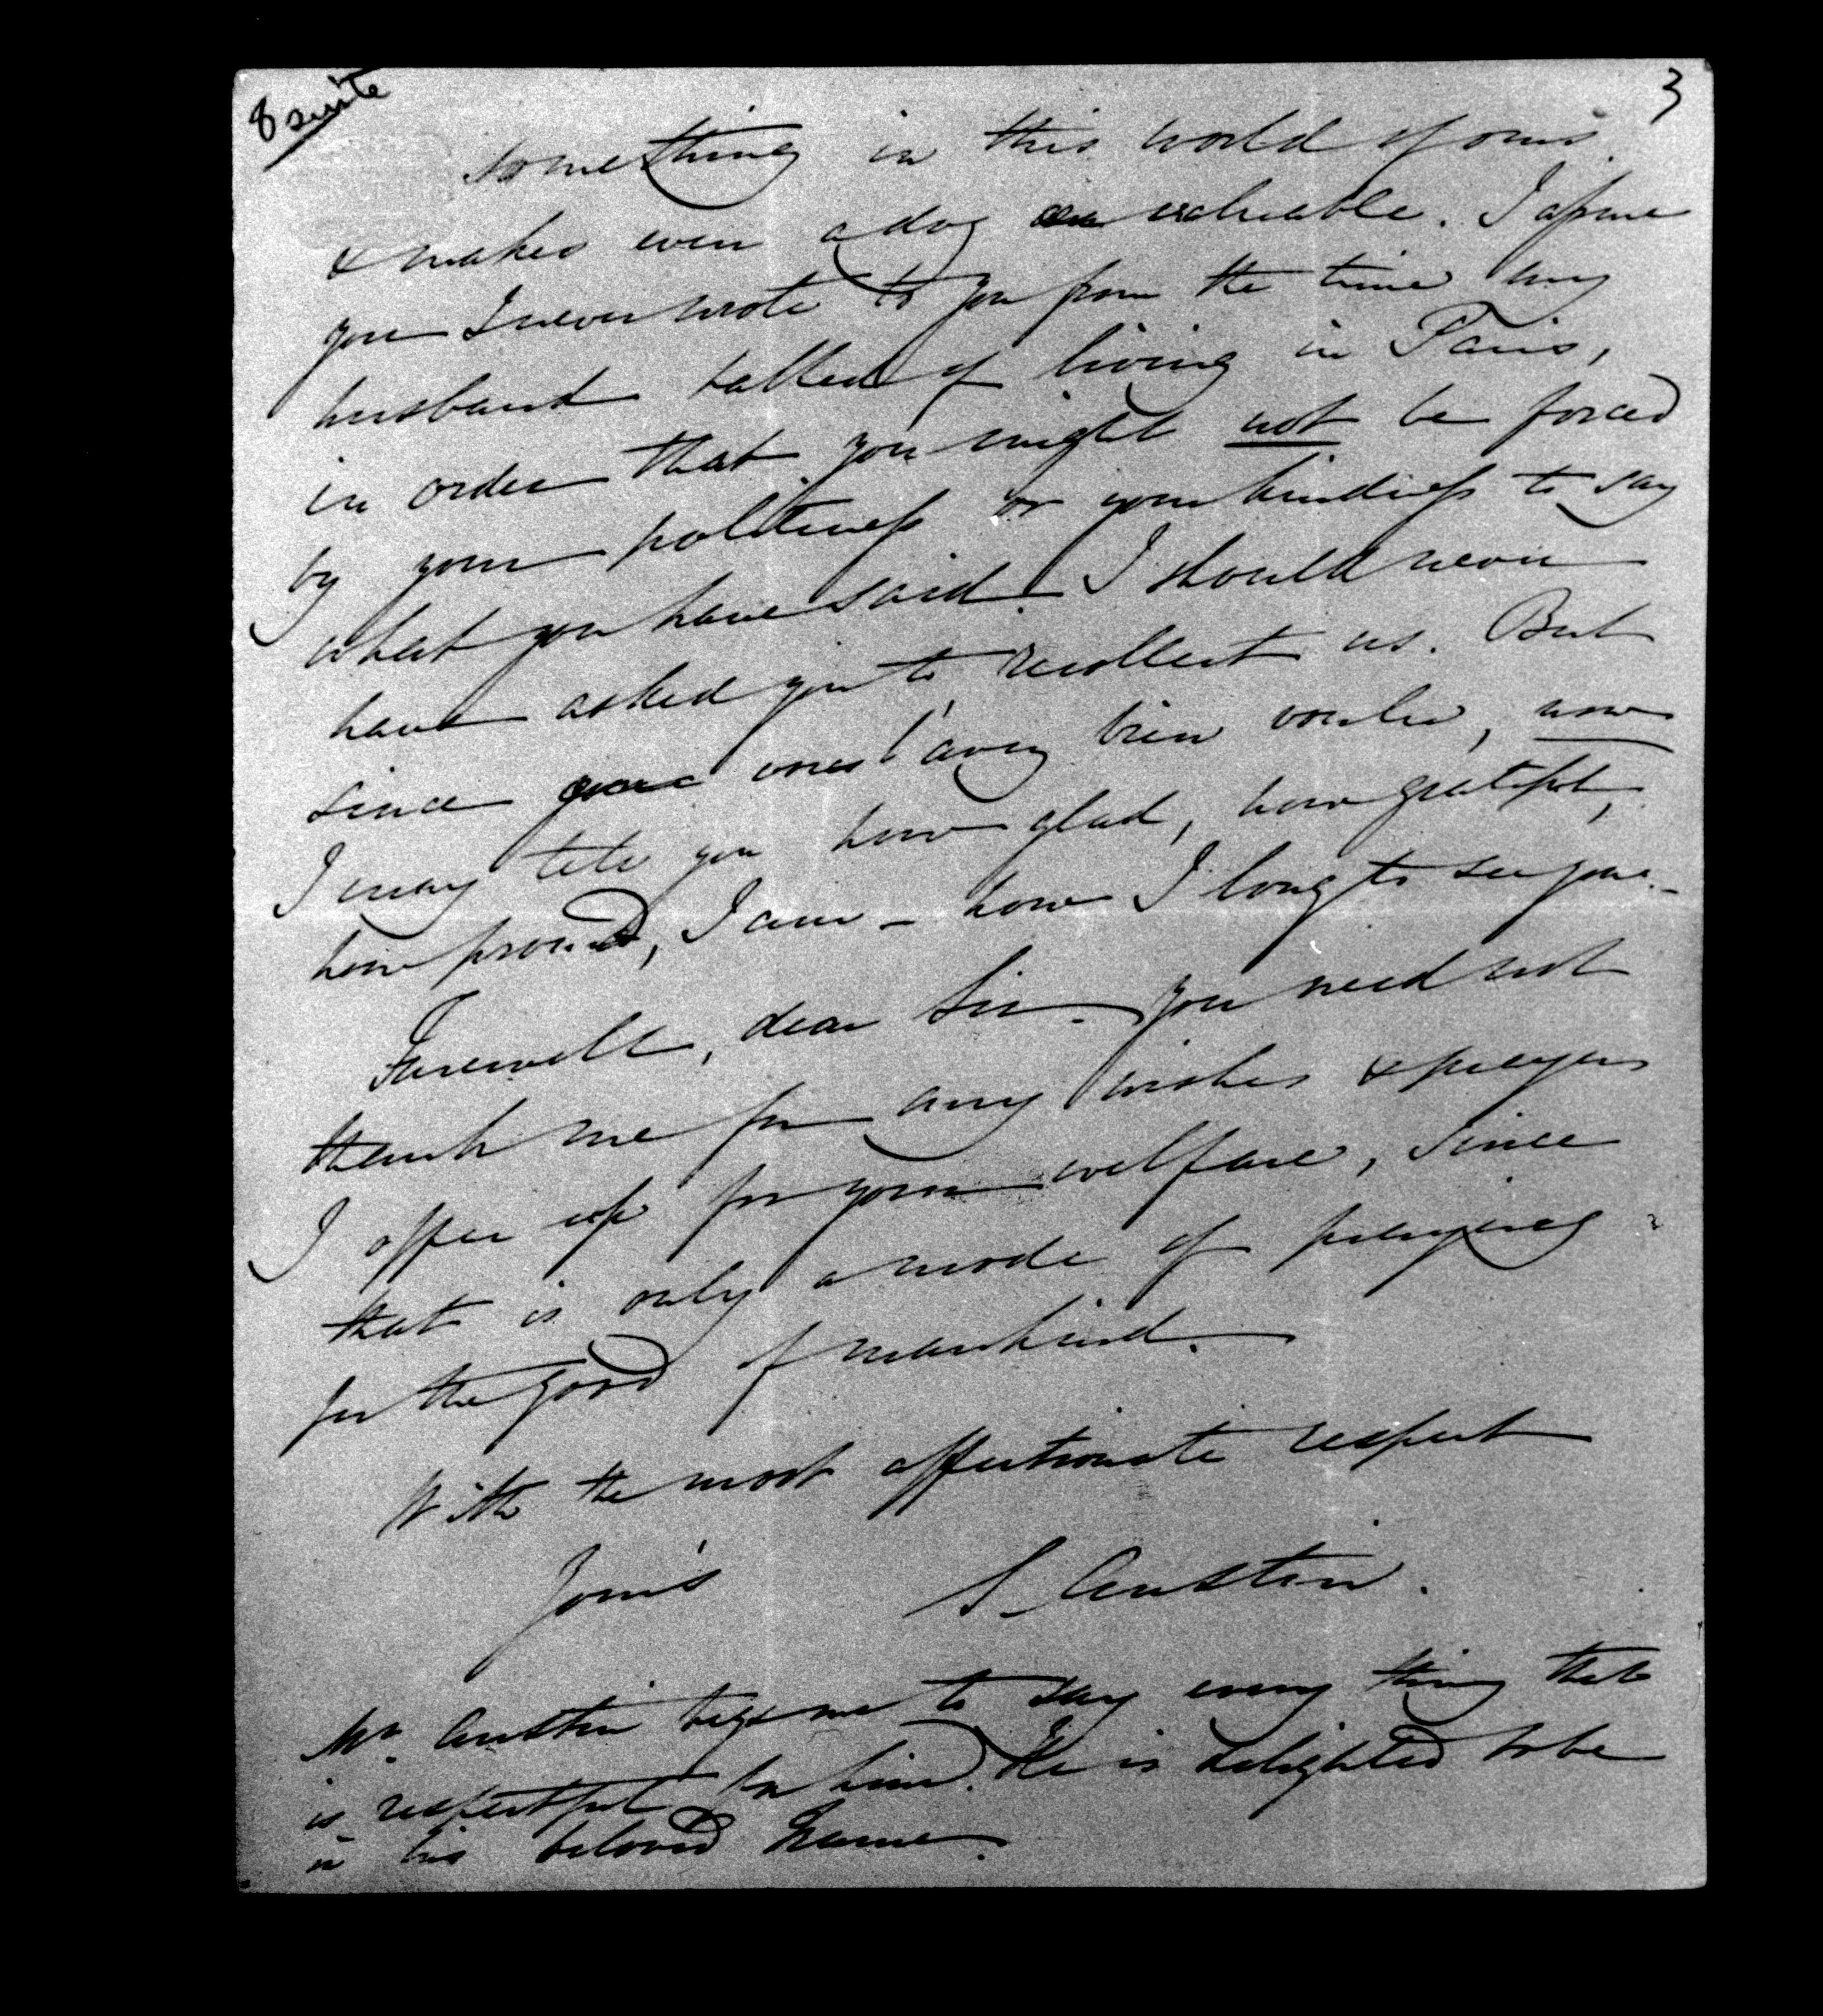 8 suite
3
something in this world of ours
& makes even a dog valuable. I assure
you I never wrote to you from the time my
husband talked of living in Paris,
in order that you might not be forced
by your politeness or your kindness to say
what you have said. I should never
have asked you to recollect us. But
since vous l'avez bien voulu, now
I may tell you how glad, how grateful,
how proud, I am – how I long to see you.–
Farewell, dear Sir. You need not
thank me for any wishes & prayers
I offer up for your welfare, since
that is only a mode of praying
for the good of mankind.
With the most affectionate respect
Your's S. Austin.
Mr. Austin begs me to say every thing that
is respectful for him. He is delighted to be
in his beloved France.